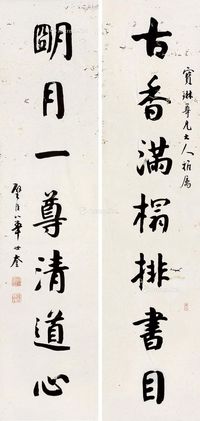 寶琳尊兄大人雅屬
古香滿榻排書目
朙月一尊清道心
璧臣弟華世奎